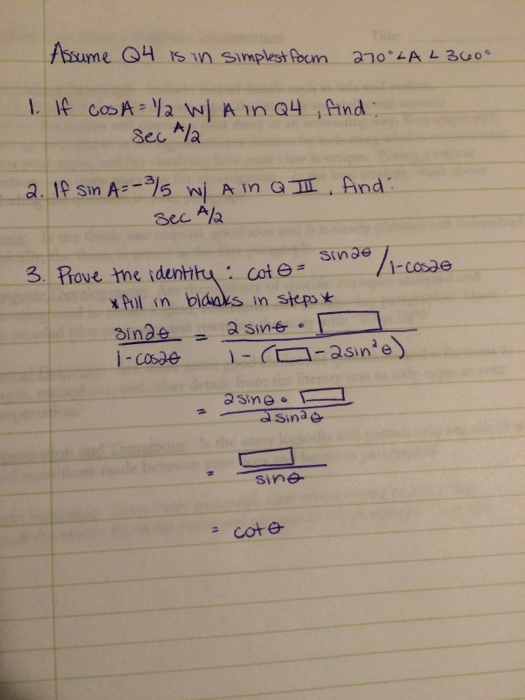 Assume Q4 is in simplest form 270°<A<360°
1. If cosA=1/2 w/ A in Q4, find:
sec A/2
2. If sin A=-3/5 w/ A in QIII, find:
sec A/2
3. Prove the identity: cotθ= sin2θ/1-cos2θ
*fill in blanks in steps*
sin2θ/1-cos2θ = 2sinθ·□/1-(□-2sin²θ)
= 2sinθ·□/2sin²θ
= □/sinθ
= cotθ